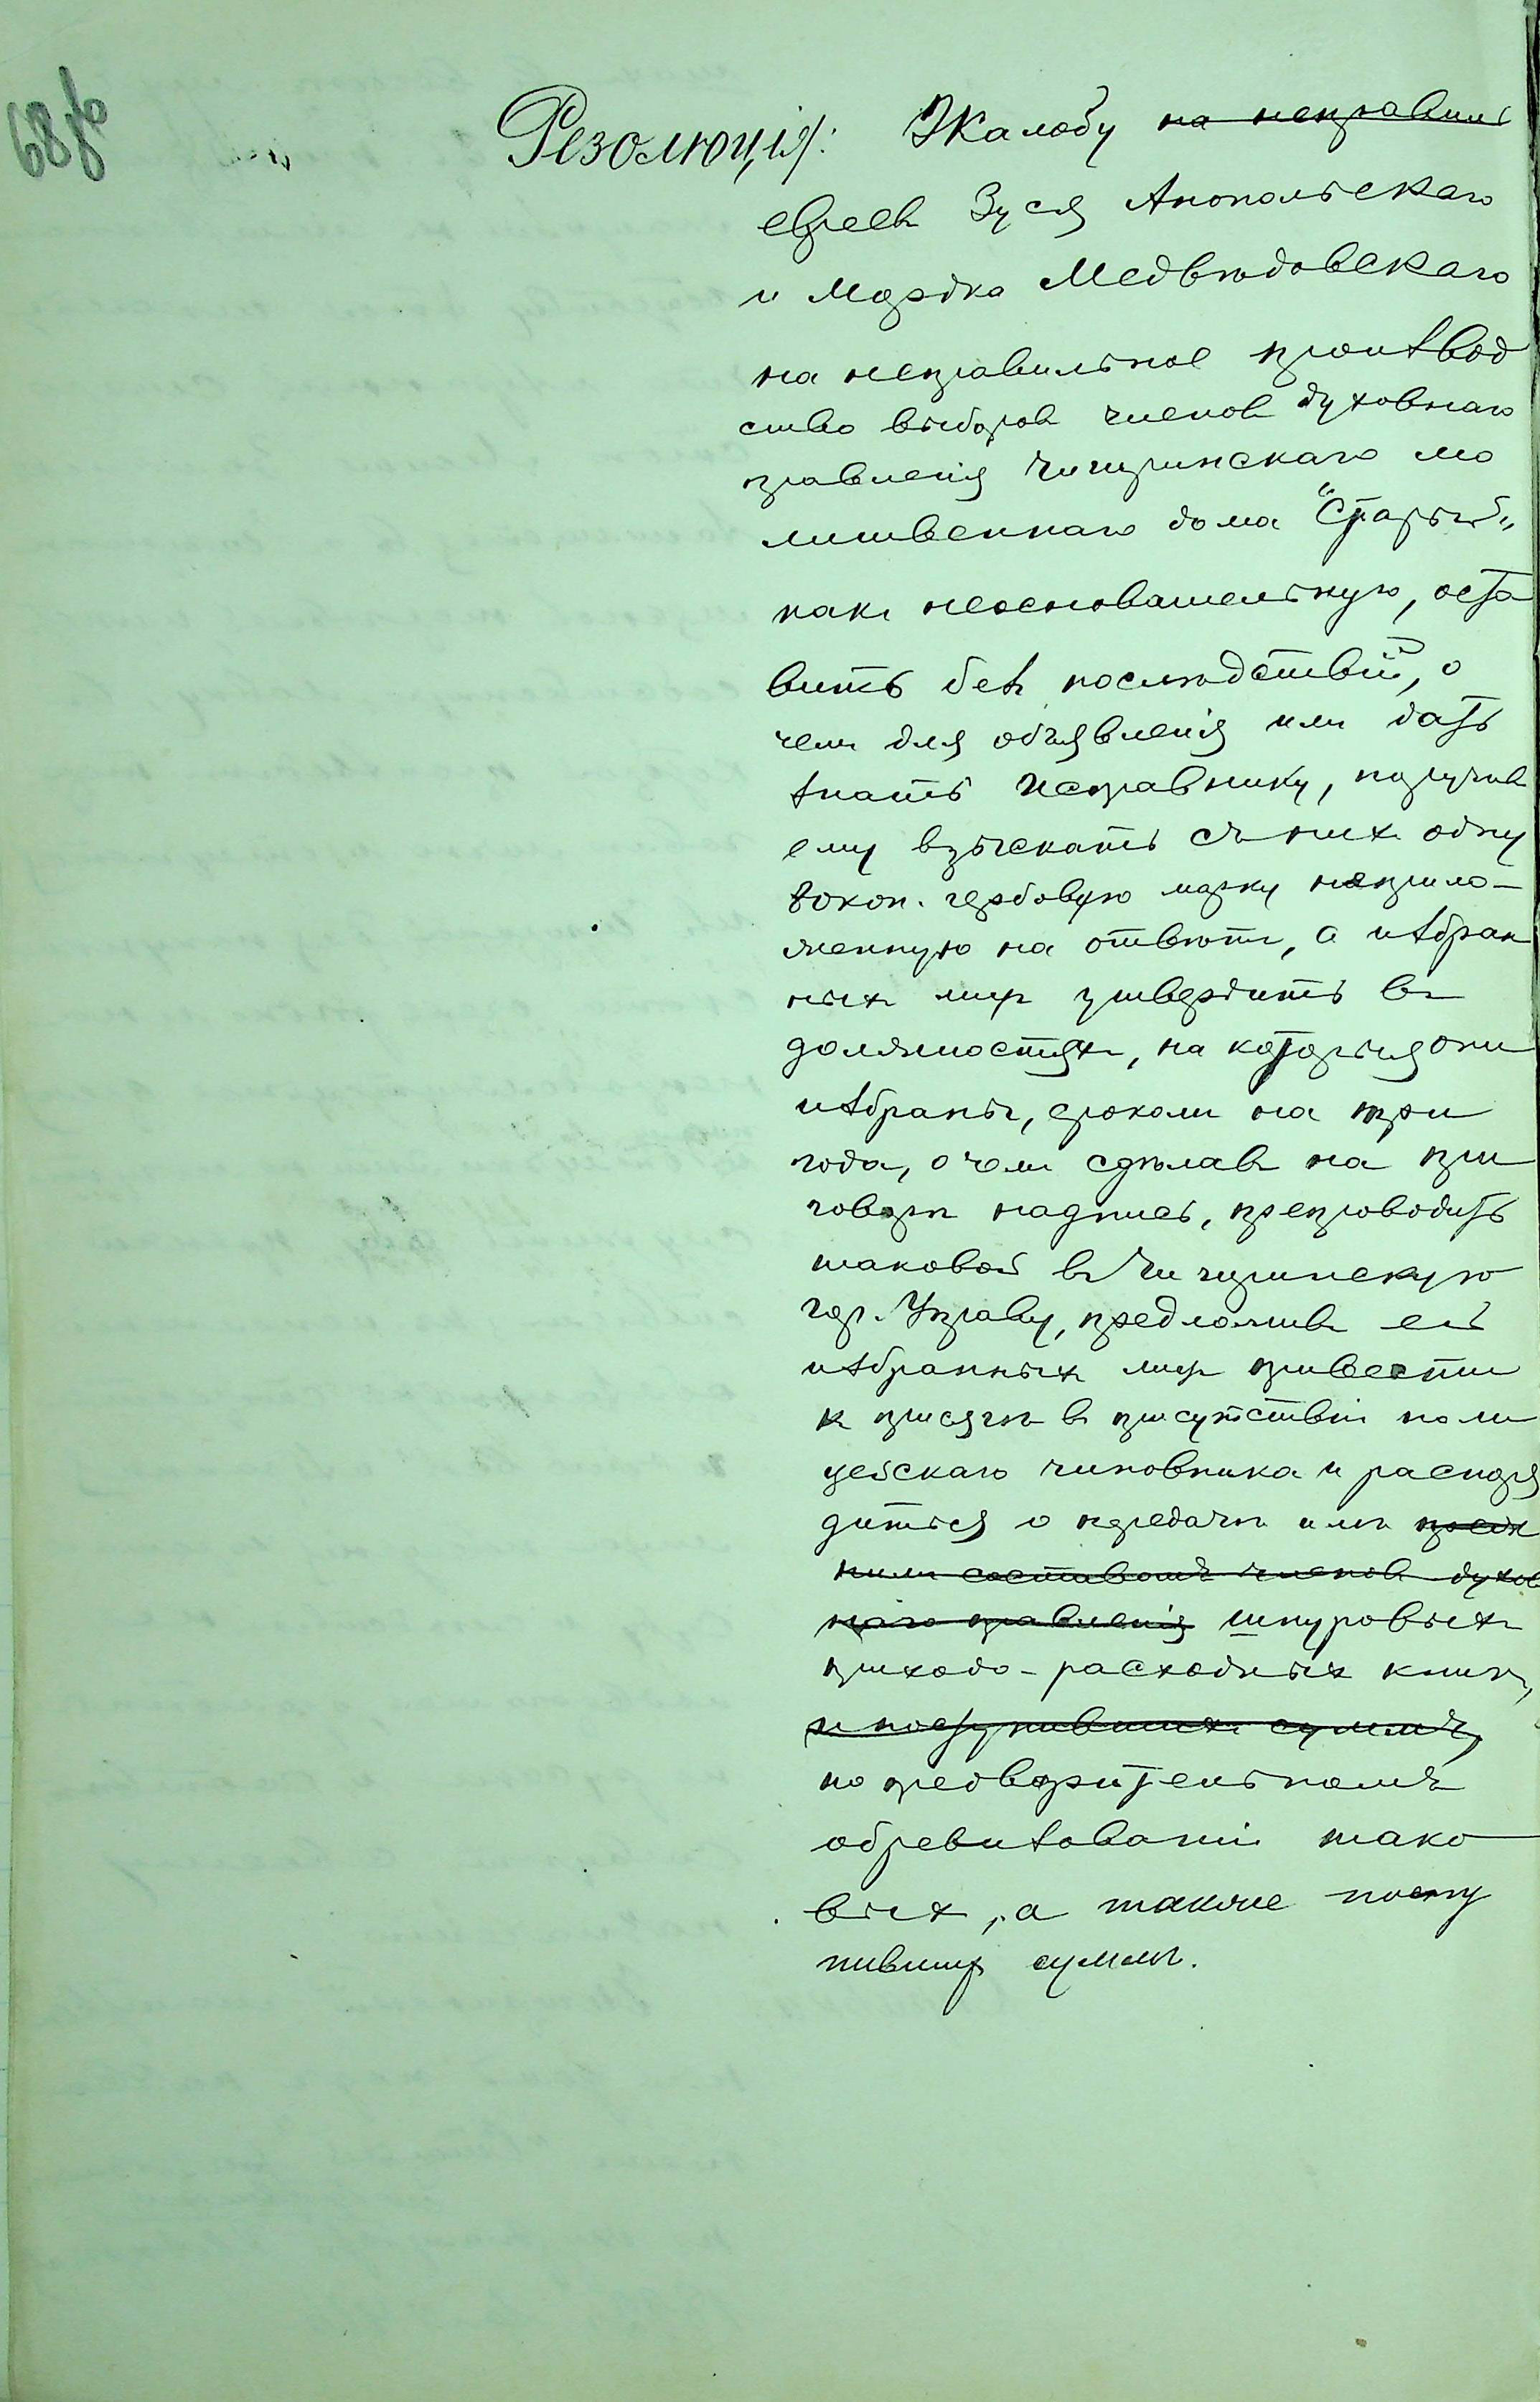 68об
Резолюція: Жалобу на неправиль
евреевъ Зуся Анопольскаго
и Мордка Медвѣдовскаго
на неправильное производ
ство выборовъ членовъ духовнаго
правленія Чигиринскаго мо
литвеннаго дома "Старый"
какъ неосновательную, оста
вить безъ послѣдствій, о
чемъ для объявленія имъ дать
знать Исправнику, поручивъ
ему взыскать съ нихъ одну
80 коп. гербовую марку неприло-
женную на отвѣтъ, а избран
ныхъ лицъ утвердить въ
должностяхъ, на которыя они
избраны, срокомъ на три
года, о чемъ сдѣлавъ на при
говорѣ надпись, препроводить
таковой въ Чигиринскую
гор. Управу, предложивъ ей
избранныхъ лицъ привести
къ присягѣ въ присутствіи поли
цейскаго чиновника и распоря
диться о передачѣ имъ преж
нимъ составомъ членовъ духов
наго правленія шнуровыхъ
приходо-расходныхъ книгъ,
и поступившихъ суммъ,
по предварительномъ
обревизованіи тако
выхъ, а также посту
пившія суммы.